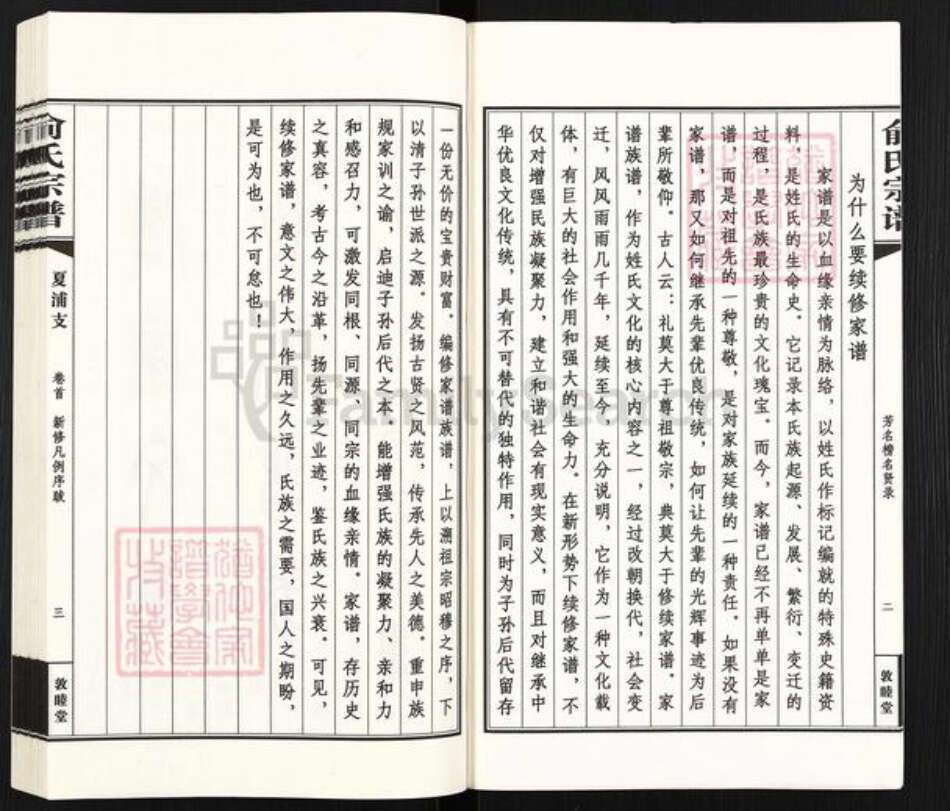 俞氏宗谱
芳名榜名贤录
二
敦睦堂
为什么要续修家谱
家谱是以血缘亲情为脉络，以姓氏作标记编就的特殊史籍资
料，是姓氏的生命史。它记录本氏族起源、发展、繁衍、变迁的
过程，是氏族最珍贵的文化瑰宝。而今，家谱已经不再单单是家
谱，而是对祖先的一种尊敬，是对家族延续的一种责任。如果没有
家谱，那又如何继承先辈优良传统，如何让先辈的光辉事迹为后
辈所敬仰。古人云：礼莫大于尊祖敬宗，典莫大于修续家谱。家
谱族谱，作为姓氏文化的核心内容之一，经过改朝换代，社会变
迁，风风雨雨几千年，延续至今，充分说明，它作为一种文化载
体，有巨大的社会作用和强大的生命力。在新形势下续修家谱，不
仅对增强民族凝聚力，建立和谐社会有现实意义，而且对继承中
华优良文化传统，具有不可替代的独特作用，同时为子孙后代留存
一份无价的宝贵财富。编修家谱族谱，上以溯祖宗昭穆之序，下
以清子孙世派之源。发扬古贤之风范，传承先人之美德。重申族
规家训之谕，启迪子孙后代之本，能增强氏族的凝聚力、亲和力
和感召力，可激发同根、同源、同宗的血缘亲情。家谱，存历史
之真容，考古今之沿革，扬先辈之业迹，鉴氏族之兴衰。可见，
续修家谱，意文之伟大，作用之久远，氏族之需要，国人之期盼，
是可为也，不可怠也！
俞氏宗谱
夏浦支
卷首 新修凡例序跋
三
敦睦堂
FamilySearch